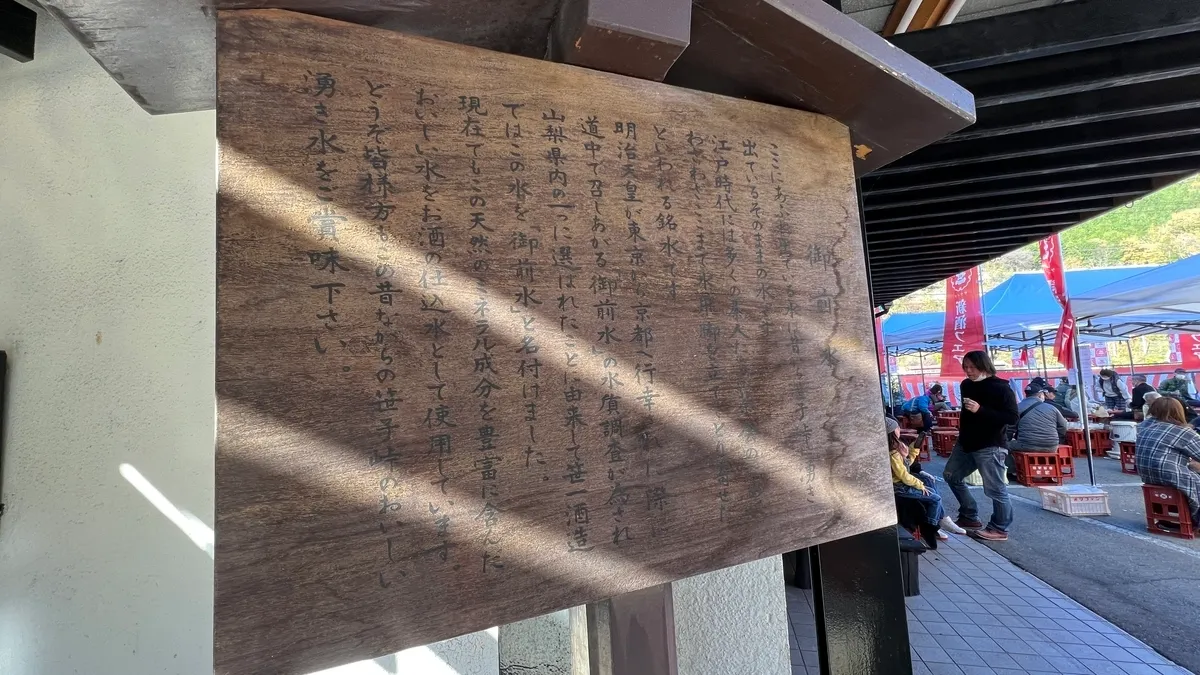 御前水
ここにあふれ
出ているそのままの水
江戸時代には多くの
わざわざここまで水
といわれる銘水です
明治天皇が東京から京都へ行幸
道中で召しあがる「御前水」の水質調査が為され
山梨県内の一つに選ばれたことに由来して笹一酒造
ではこの水を「御前水」と名付けました。
現在でもこの天然のミネラル成分を豊富に含んだ
おいしい水をお酒の仕込水として使用しています。
どうぞ皆様方もこの昔ながらの笹子峠のおいしい
湧き水をご賞味下さい。
新酒フェア